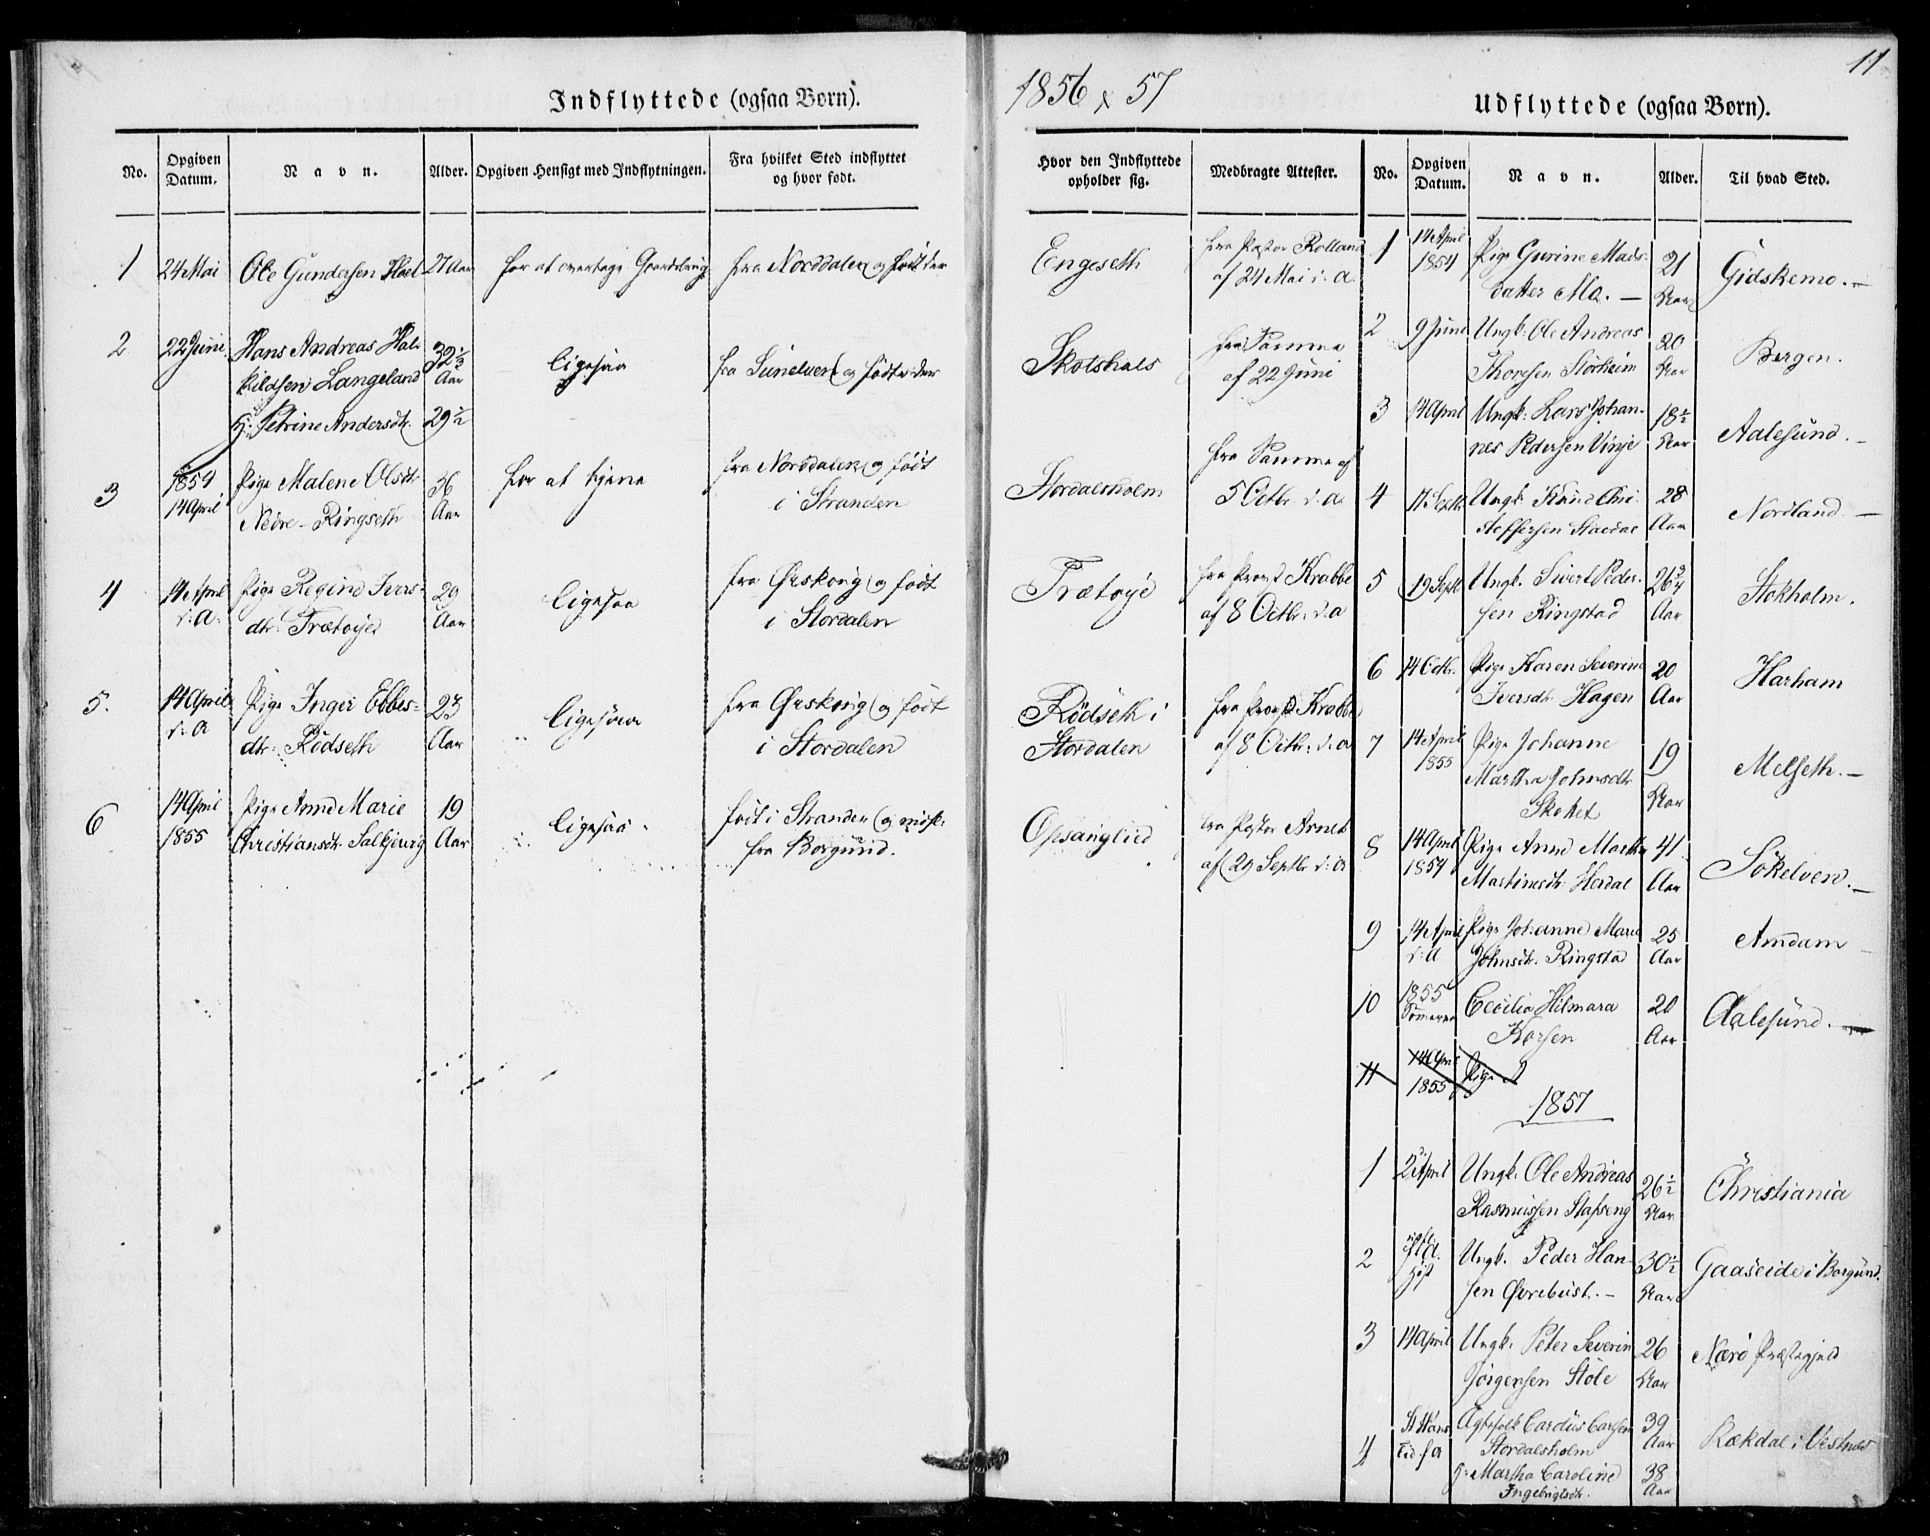 11
Indflyttede (ogsaa Børn).
1856 & 57
Udflyttede (ogsaa Børn).
No.
Opgiven Datum.
Navn.
Alder.
Opgiven Hensigt med Indflytningen.
Fra hvilket Sted indflyttet og hvor født.
Hvor den Indflyttede opholder sig.
Medbragte Attester.
1
24 Mai
Ole Gundersen Hoel
21 Aar
for at overtage Gaardsbrug
fra Norddalen og født der
Engeseth
fra Pastor Rolland
af 24 Mai d: A
2
22 Juni
Hans Andreas Hal-
kildsen Langeland
32½
Aar
H: Petrine Andersdtr.
29½
ligesaa
fra Sunelven og fødte der
Skotshals
fra Samme
af 22 Juni
3
1854
14 April
Pige Malene Olsdtr
Nedre-Ringseth
36
Aar
for at tjene
fra Norddalen og født
i Stranden
Stordalsholm
fra Samme af
5 Octbr. d: A
4
14 April
d: A.
Pige Regine Ivers-
dtr. Trætøyed
29
Aar
ligesaa
fra Ørskoug og født
i Stordalen
Trætøye
fra Provst Krabbe
af 8 Octbr. d: a
5.
14 April
d: A
Pige Inger Ebbes-
dtr: Rödseth
23
Aar
ligesaa
fra Ørskoug og født
i Stordalen
Rödseth i
Stordalen
fra Provst Krabbe
af 8 Octbr. d: a
6
14 April
1855
Pige Anne Marie
Christiansdtr.
19
Aar
ligesaa
født i Stranden og
fra Borgund.
Opsanglied
fra Pastor Arnet
af 29 Septbr d: A
No.
Opgiven Datum.
Navn.
Alder.
Til hvad Sted.
1
14 April
1854
Pige Gurine Mads-
datter Mo. —
21
Aar
Gidskemo. —
2
9 Juni
Ungk: Ole Andreas
Thoresen Storheim
20
Aar
Bergen.
3
14 April
Ungk: Lars Johan-
nes Pedersen Vinje
18½
Aar
Aalesund. —
4
11 Septbr
Ungk: Knud Chri-
stoffersen Stavdal
28
Aar
Nordland. —
5
19 Septbr
Ungk. Sivert Peder-
sen Ringstad
26¾
Aar
Stokholm.
6
14 Octbr.
Pige Karen Severine
Iversdtr. Hagen
20
Aar
Harham
7
14 April
1855
Pige Johanne
Martha Johnsdtr
Skotet
19
Aar
Melseth. —
8
14 April
1854
Pige Anne Martha
Martinusdtr. Herdal
41
Aar
Sökelven. —
9
14 April
d: A
Pige Johanne Marie
Johnsdtr. Ringstad
25
Aar
Amdam —
10
1855
Sommeren
Cecilia Hilmara
Korsen
20
Aar
Aalesund. —
11
14 April
1855
Pige A
1857
1
2 April
Ungk: Ole Andreas
Rasmussen Stafseng
26½
Aar
Christiania
2
f: A.
Høst
Ungk. Peder Han-
sen Øvrebust. —
30½
Aar
Gaaseide i Borgund.
3
14 April
Ungk: Peter Severin
Jörgensen Stöle
26
Aar
Nærö Præstegjeld
4
St Hans
tid f a
Ægtefolk Cardus Carlsen
Stordalsholm
39
Aar
H: Martha Caroline
Ingebrigtsdtr.
38
Aar
Rækdal i Vestnes